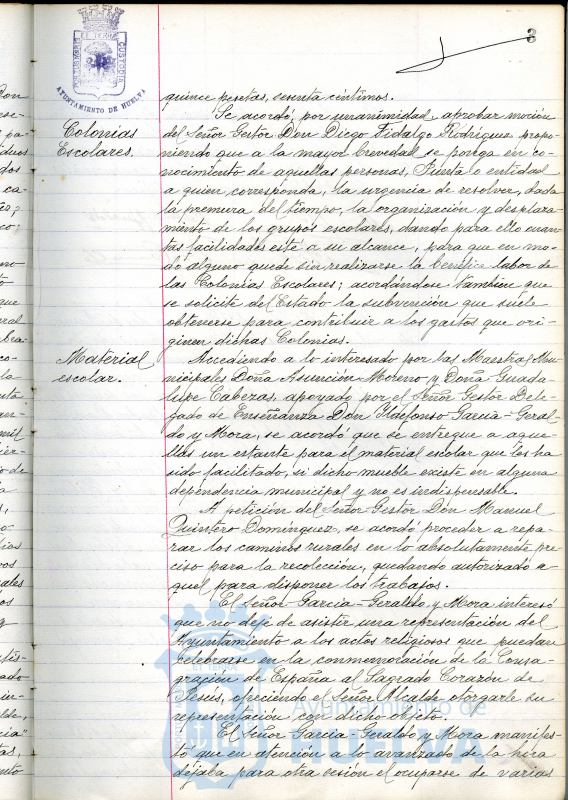 3
AYUNTAMIENTO DE HUELVA
quince pesetas, sesenta céntimos.
Colonias Escolares.
Se acordó, por unanimidad, aprobar moción
del Señor Gestor Don Diego Fidalgo Rodríguez propo-
niendo que a la mayor brevedad se ponga en co-
nocimiento de aquellas personas, Junta o entidad
a quien corresponda, la urgencia de resolver, dada
la premura del tiempo, la organización y desplaza-
miento de los grupos escolares, dando para ello cuan-
tas facilidades esté a su alcance, para que en mo-
do alguno quede sin realizarse la benéfica labor de
las Colonias Escolares; acordándose tambien que
se solicite del Estado la subvención que suele
obtenerse para contribuir a los gastos que ori-
ginen dichas Colonias.
Material escolar.
Accediendo a lo interesado por las Maestras Mu-
nicipales Doña Asunción Moreno y Doña Guada-
lupe Cabezas, apoyado por el Señor Gestor Dele-
gado de Enseñanza Don Ildefonso Garcia-Geral-
do y Mora, se acordó que se entregue a aque-
llas un estante para el material escolar que les ha
sido facilitado, si dicho mueble existe en alguna
dependencia municipal y no es indispensable.
A petición del Señor Gestor Don Manuel
Quintero Domínguez, se acordó proceder a repa-
rar los caminos rurales en lo absolutamente pre-
ciso para la recolección, quedando autorizado a-
quel para disponer los trabajos.
El Señor Garcia-Geraldo y Mora interesó
que no deje de asistir una representación del
Ayuntamiento a los actos religiosos que puedan
celebrarse en la conmemoración de la Consa-
gración de España al Sagrado Corazón de
Jesús, ofreciendo el Señor Alcalde otorgarle su
representación con dicho objeto.
El Señor Garcia-Geraldo y Mora manifes-
tó que en atención a lo avanzado de la hora
dejaba para otra sesión el ocuparse de varios
Ayuntamiento de
HUELVA